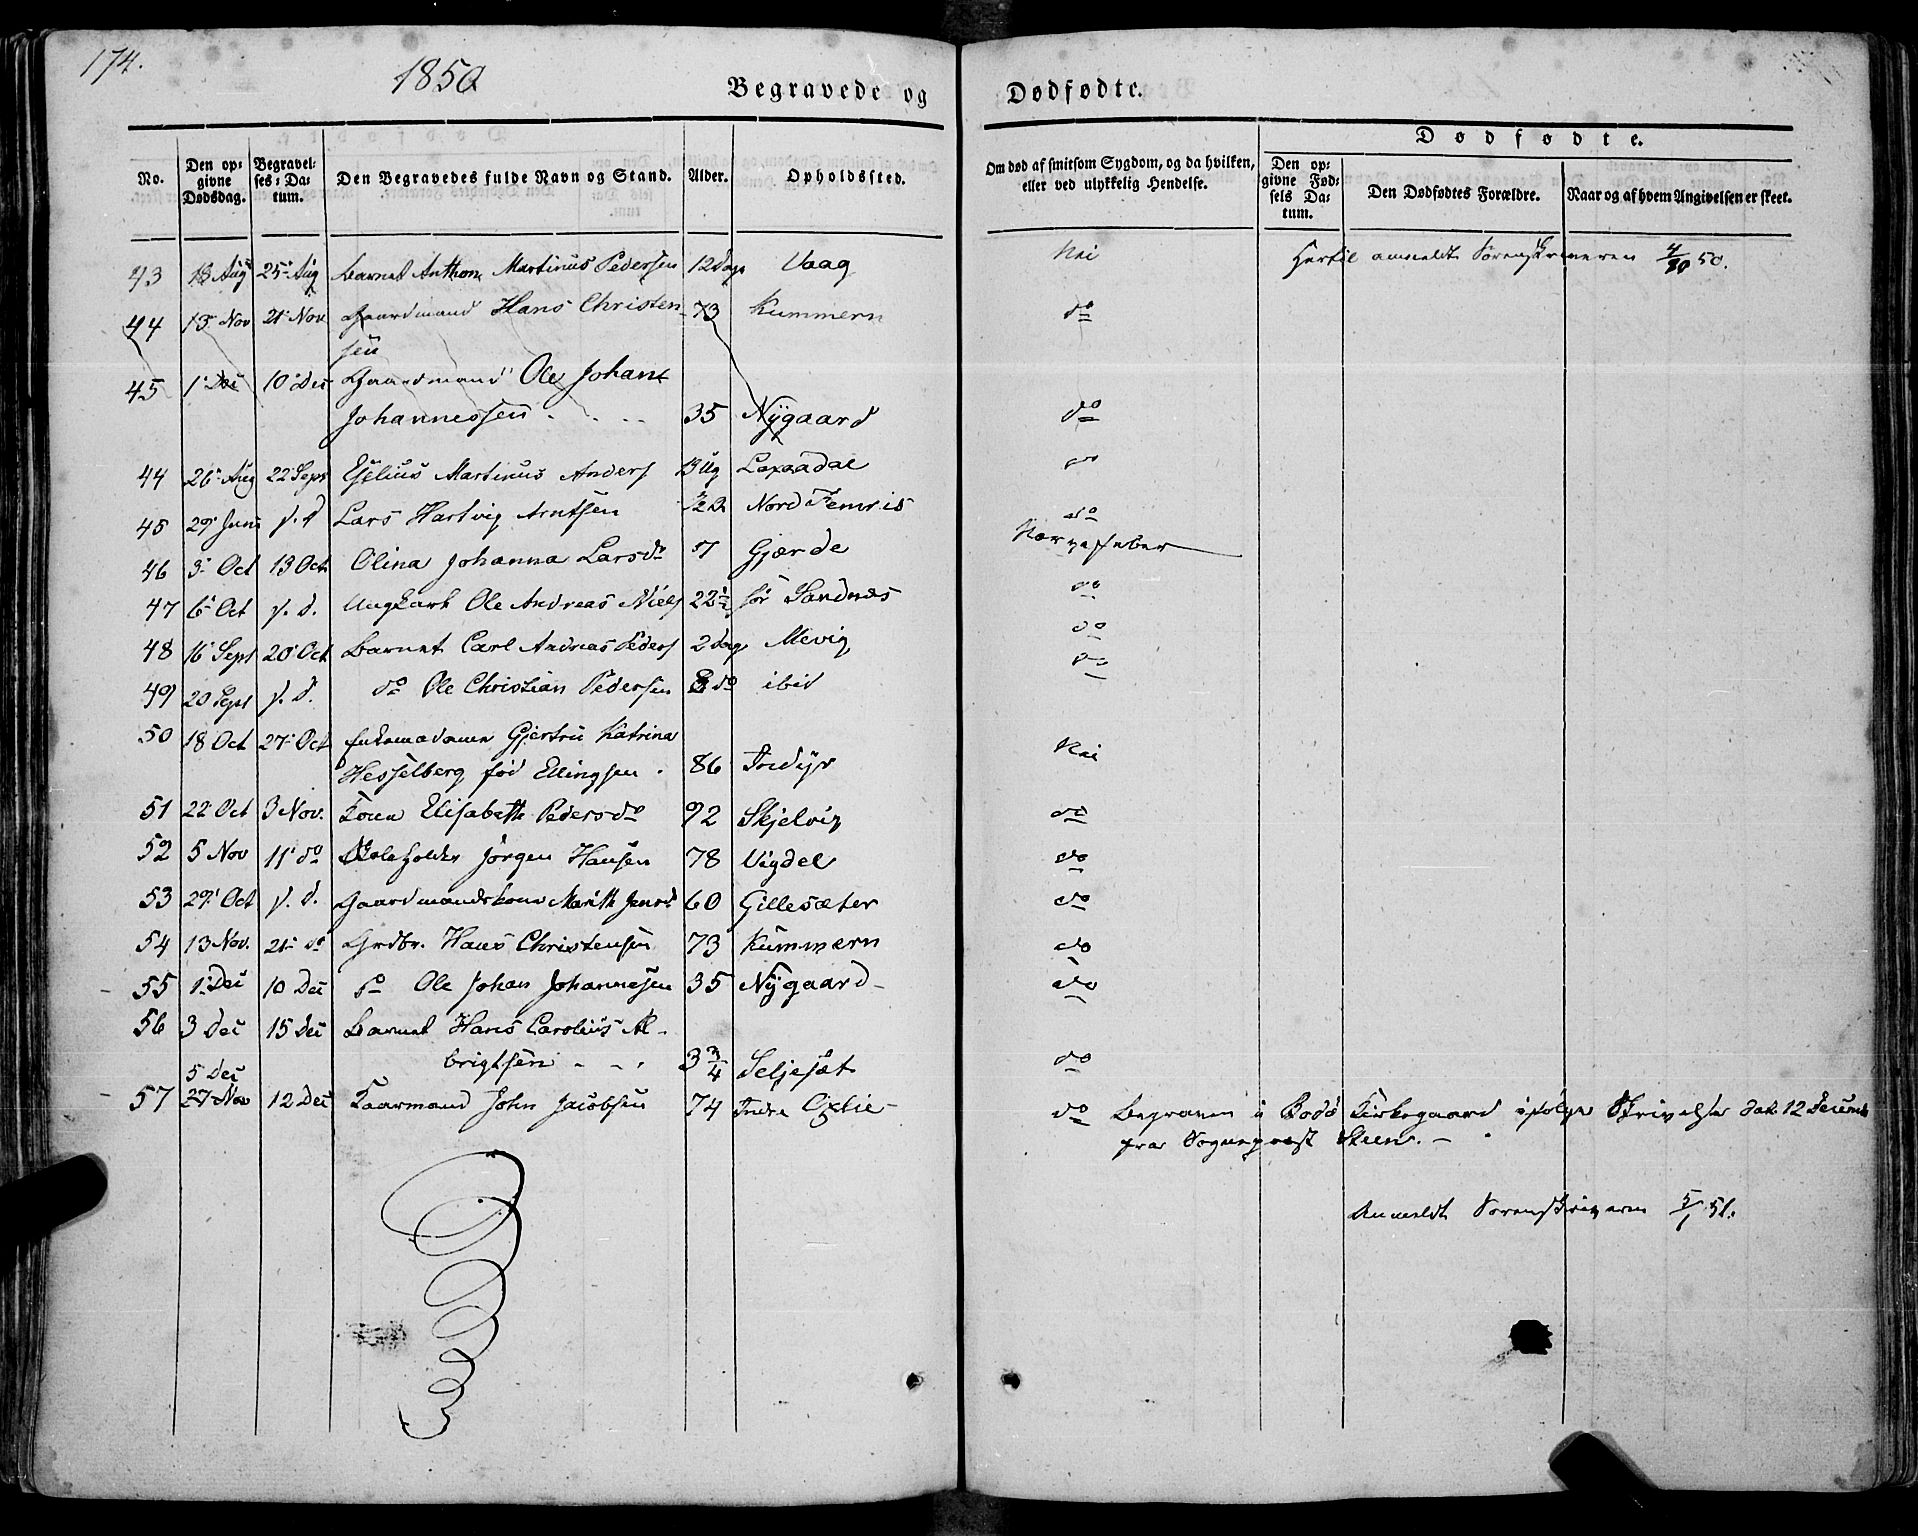 174.
1850
Begravede og
Dødfødte.
Dødfødte.
No.
Den op-
givne
Dødsdag.
Begravel-
ses-Da-
tum.
Den Begravedes fulde Navn og Stand.
Alder.
Opholdssted.
Om død af smitsom Sygdom, og da hvilken,
eller ved ulykkelig Hendelse.
Den op-
givne Fød-
sels Da-
tum.
Den Dødfødtes Forældre.
Naar og af hvem Angivelsen er skeet.
43 13 Aug 25 Aug Barnet Anthon Martinus Pedersen 12 Dage Vaag Nei Hertil anmeldt Sorenskriveren 4/10 50.
44 13 Nov 21 Nov Gaardmand Hans Christen- 73 Kummern do
sen
45 1 Dec 10 Dec Gaardmand Ole Johan
Johannessen 35 Nÿgaard do
44 26 Aug 22 Sept Martinus Anders 13 Ug do
45 29 Juni s. d Lars Hartvig Arntsen Nord Femris do
46 3 Oct 13 Oct Olina Johanna Larsdr 7 Gjærde Nervefeber
47 6 Oct s. d. Ungkarl Ole Andreas Niels 22½ sør Sandnæs do
48 16 Sept 20 Oct Barnet Carl Andreas Peders 2 Dage Mevig do
49 20 Sept s. d. do Ole Christian Pedersen do ibid do
50 18 Oct 27 Oct Enkemadame Gjertru Katrina
Hesselberg fød Ellingsen 86 Indÿr Nei
51 22 Oct 3 Nov. Kone Elisabeth Pedersdr 92 Skjelvig do
52 5 Nov 11 do Skoleholder Jørgen Hansen 78 Vigdel do
53 29 Oct s. d. Gaardmandskone Marith Jensd 60 Gillesæter do
54 13 Nov. 21 do Grdbr. Hans Christensen 73 Kummern do
55 1 Dec 10 Dec do Ole Johan Johannesen 35 Nÿgaard do
56 3 Dec 15 Dec Barnet Hans Carolius Al-
brigtsen 3 3/4 Seljesæt do
5 Dec
57 27 Nov 12 Dec Kaarmand John Jacobsen 74 Indre do Begraven i Bodø Kirkegaard ifølge Skrivelse dat. 12 Decemb
fra Sognepræst Steen.
Anmeldt Sorenskriveren 5/1 51.